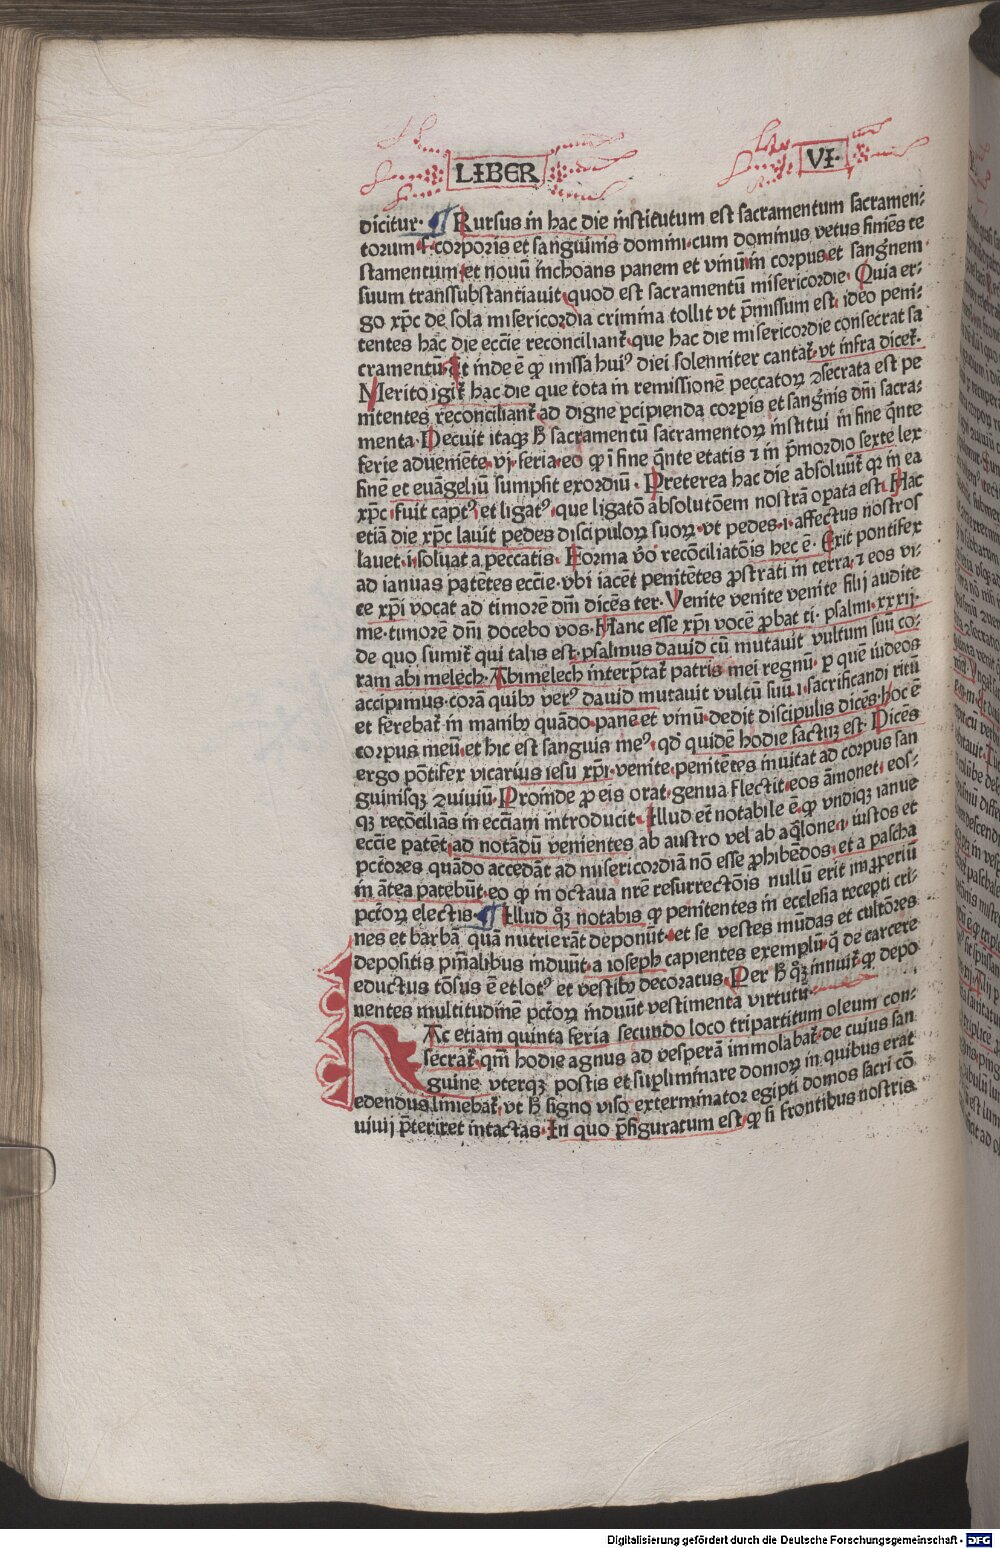 LIBER VI·
dicitur· ¶ Rursus in hac die institutum est sacramentum sacramen⸗
torum · corporis et sanguinis domini·cum dominus vetus finiēs te
stamentum·et nouū inchoans panem et vinū in corpus et sanguinem
suum transsubstantiauit·quod est sacramentū misericordie· Quia er⸗
go xp̄c de sola misericordia crimina tollit vt p̄missum est· ideo peni⸗
tentes hac die ecc̄ie reconciliant᷑·que hac die misericordie consecrat sa
cramentū·Et inde ē ꝙ missa hui⁹ diei solenniter cantat᷑·vt infra dicet᷑·
Merito igit᷑ hac die que tota in remissionē peccatoꝝ ꝯsecrata est pe
nitentes reconciliant᷑ ad digne ꝑcipienda corporis et sanguinis dn̄i sacra⸗
menta·Decuit itaqꝫ hꝰ sacramentū sacramentoꝝ institui in fine q̄nte
ferie adueniēte·vi·feria·eo ꝙ ī fine q̄nte etatis ⁊ in p̄mordio sexte lex
finē et euāgeliū sumpsit exordiū· Preterea hac die absoluūt᷑ qꝛ in ea
xp̄c fuit capt⁹ et ligat⁹·que ligatō absolutōem nostrā opata est·Hac
etiā die xp̄c lauit pedes discipuloꝝ suoꝝ·vt pedes·i·affectus nostros
lauet·i·soluat a peccatis· Forma v̄o recōciliatōis hec ē· Erit pontifex
ad ianuas patētes ecc̄ie·vbi iacēt penitētes ꝓstrati in terra·⁊ eos vi·
ce xp̄i vocat ad timorē dn̄i dicēs ter·Venite venite venite filij audite
me·timorē dn̄i docebo vos·Hanc esse xp̄i vocē ꝓbat ti· psalmi·xxxij·
de quo sumit᷑ qui talis est·psalmus dauid cū mutauit vultum suū co⸗
ram abimelech·Abimelech interp̄tat᷑ patris mei regnū· ꝑ quē iudeos
accipimus·corā quibꝰ ver⁹ dauid mutauit vultū suū·i·sacrificandi ritū
et ferebat᷑ in manibꝰ quādo·pane et vinū·dedit discipulis dicēs·hoc ē
corpus meū·et hic est sanguis me⁹·qd̄ quidē hodie factū est·Dicēs
ergo pōtifex vicarius iesu xp̄i·venite·penitētes inuitat ad corpus san
guinisqꝫ ꝯuiuiū·Proinde ꝓ eis orat·genua flectit·eos āmonet· eos⸗
qꝫ recōciliās in ecc̄iam introducit·Illud et᷑ notabile ē·ꝙ vndiqꝫ ianue
ecc̄ie patēt·ad notādū venientes ab austro vel ab aq̄lone· iustos et
pct̄ores·quādo accedāt ad misericordiā nō esse ꝓhibēdos· et a pascha
in ātea patebūt·eo ꝙ in octaua nr̄e resurrectōis nullū erit imperiū
pct̄oꝝ electis· ¶ Illud qͦꝫ notabis ꝙ penitentes in ecclesia recepti cri⸗
nes et barbā quā nutrierāt deponūt· et se vestes mūdas et cultōres
depositis pm̄alibus induūt·a ioseph capientes exemplū·q̄ de carcere
eductus tōsus ē et lot⁹ et vestibꝰ decoratus·Per hꝰ qͦꝫ innuit᷑ ꝙ depo
nentes multitudinē pct̄oꝝ induūt vestimenta virtutū
Ac etiam quinta feria secundo loco tripartitum oleum con⸗
secrat᷑·qm̄ hodie agnus ad vesperā immolabat᷑·de cuius san
guine vterqꝫ postis et supliminare domoꝝ in quibus erat
edendus liniebat᷑·vt hꝰ signo viso exterminator egipti domos sacri cō
uiuij p̄teriret intactas·In quo p̄figuratum est·ꝙ si frontibus nostris
Digitalisierung gefördert durch die Deutsche Forschungsgemeinschaft · DFG